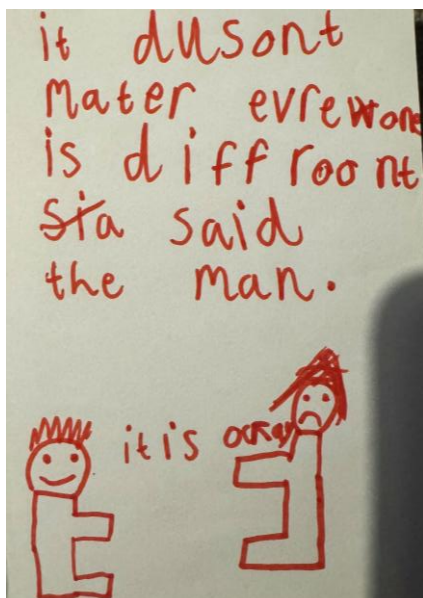 it dusont
mater evrewone
is diffroont
sia said
the man.
it is ockay